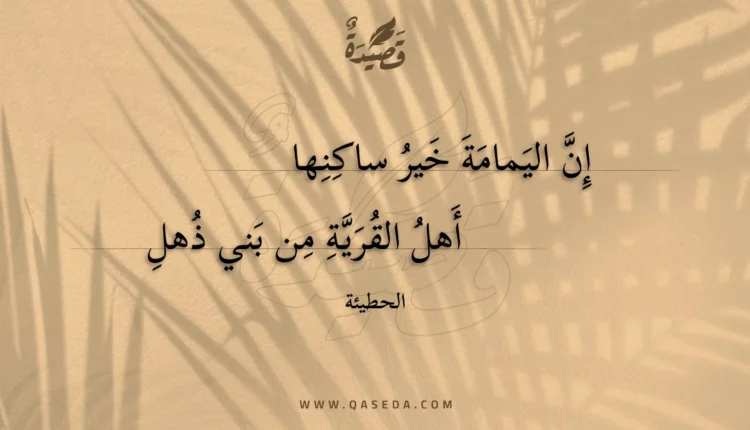 قَصِيدَةٌ
إِنَّ اليَمامَةَ خَيرُ ساكِنِها
أَهلُ القُرَيَّةِ مِن بَني ذُهلِ
الحطيئة
WWW.QASEDA.COM